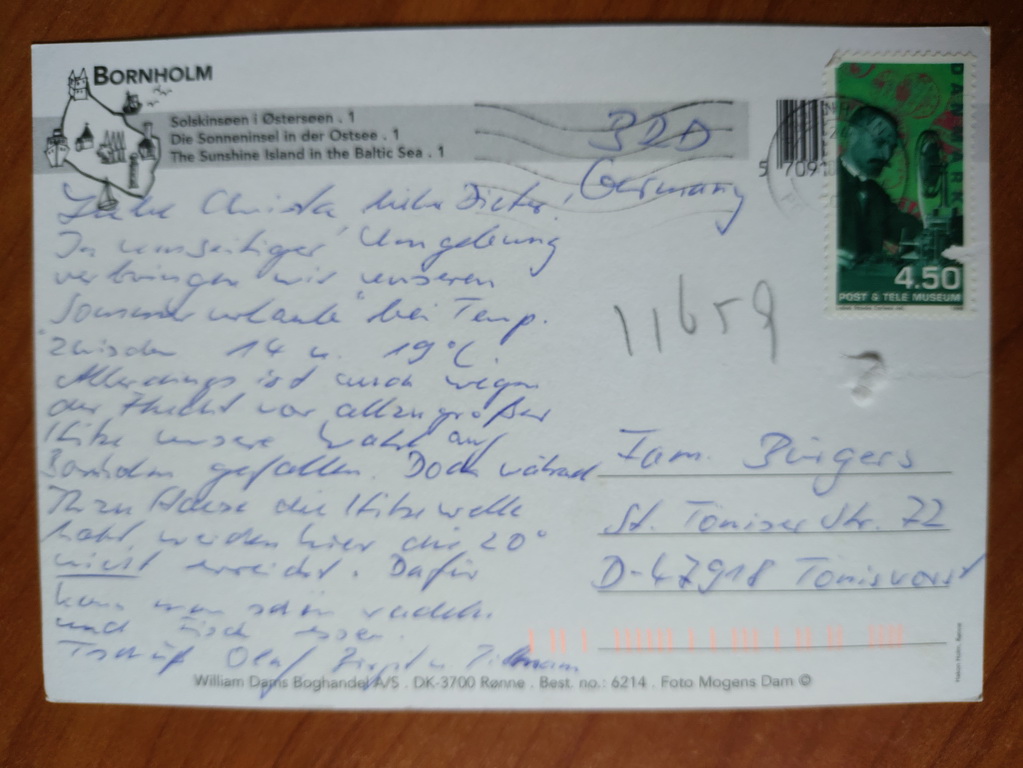 BORNHOLM
Solskinsøen i Østersøen . 1
Die Sonneninsel in der Ostsee . 1
The Sunshine Island in the Baltic Sea . 1
BRD
Germany
5 7091
DANMARK
4.50
POST & TELE MUSEUM
Liebe Christa, lieber Dieter,
In umseitiger Umgebung
verbringen wir unseren
Sommerurlaub bei Temp.
zwischen 14 u. 19°C.
Allerdings ist auch wegen
der Flucht vor allzu großer
Hitze unsere Wahl auf
Bornholm gefallen. Doch während
Ihr zu Hause die Hitzewelle
habt werden hier die 20°
nicht erreicht. Dafür
kann man schön radeln
und Fisch essen.
Tschüß Olaf
11659
Fam. Bürgers
St. Töniser Str. 72
D-47918 Tönisvorst
William Dams Boghandel A/S . DK-3700 Rønne . Best. no.: 6214 . Foto Mogens Dam ©